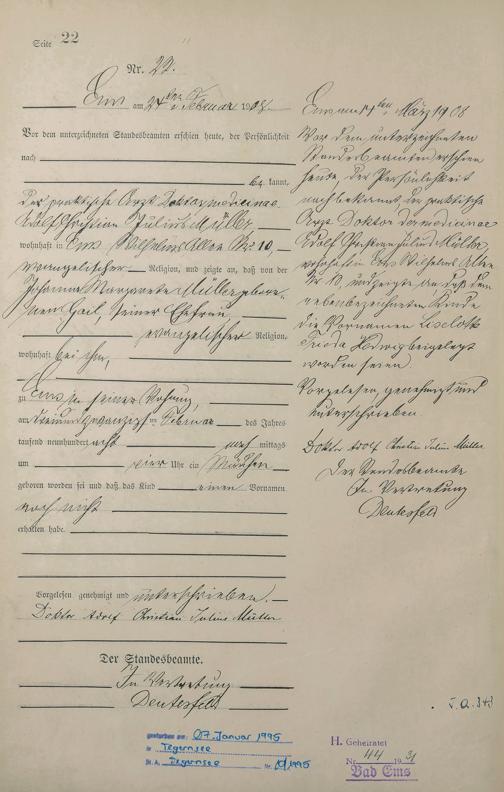 Seite 22
Nr. 22.
Ems am 24ten Februar 1908.
Vor dem unterzeichneten Standesbeamten erschien heute, der Persönlichkeit
nach
be kannt,
der praktische Arzt Doktor medicinae
Adolf Christian Julius Müller,
wohnhaft in Ems, Wilhelms Allee No 10,
evangelischer Religion, und zeigte an, daß von der
Johanna Margarete Müller gebore-
nen Heil, seiner Ehefrau,
evangelischer Religion,
wohnhaft bei ihm,
zu Ems in seiner Wohnung,
am dreiundzwanzigsten Februar des Jahres
tausend neunhundert acht nach mittags
um vier Uhr ein Mädchen
geboren worden sei und daß das Kind einen Vornamen
noch nicht
erhalten habe.
Vorgelesen, genehmigt und unterschrieben.
Doktor Adolf Christian Julius Müller
Der Standesbeamte.
In Vertretung
gestorben am: 07. Januar 1995
in Tegernsee
St.A. Tegernsee Nr. /1995
Ems am 11ten März 1908
Vor dem unterzeichneten
Standesbeamten erschien
heute, der Persönlichkeit
nach bekannt, der praktische
Arzt Doktor der medicinae
Adolf Christian Julius Müller,
wohnhaft in Ems Wilhelms Allee
Nr 10, und zeigte an, daß dem
nebenbezeichneten Kinde
die Vornamen Liselott
Frieda Hedwig beigelegt
worden seien.
Vorgelesen, genehmigt und
unterschrieben.
Doktor Adolf Christian Julius Müller
Der Standesbeamte
In Vertretung
H. Geheiratet
Nr. 44 1931
Bad Ems